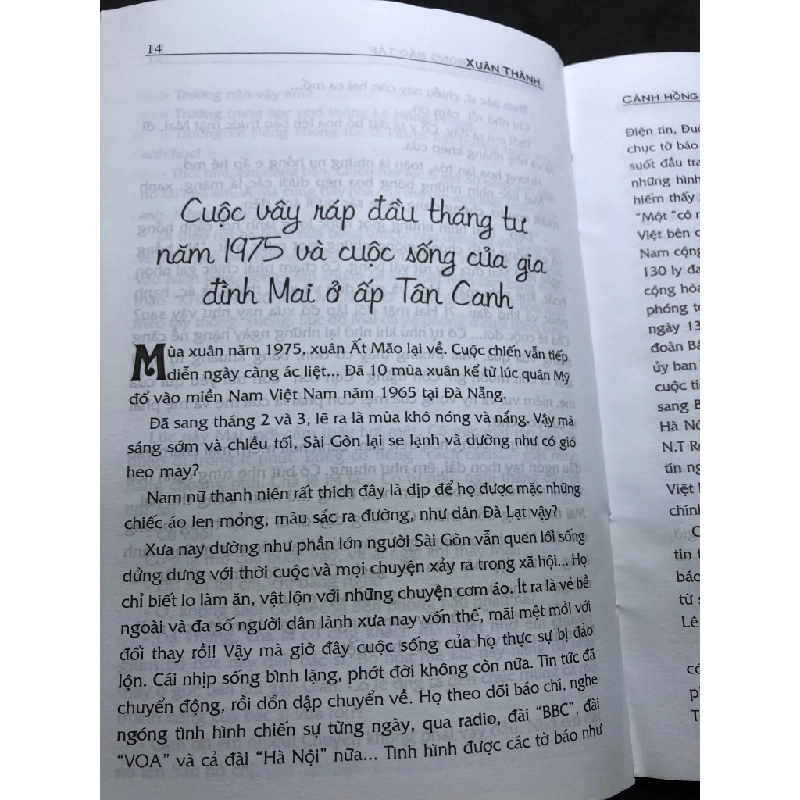 14
XUÂN THÀNH
Cuộc vây ráp đầu tháng tư
năm 1975 và cuộc sống của gia
đình Mai ở ấp Tân Canh
Mùa xuân năm 1975, xuân Ất Mão lại về. Cuộc chiến vẫn tiếp
diễn ngày càng ác liệt... Đã 10 mùa xuân kể từ lúc quân Mỹ
đổ vào miền Nam Việt Nam năm 1965 tại Đà Nẵng.
Đã sang tháng 2 và 3, lẽ ra là mùa khô nóng và nắng. Vậy mà
sáng sớm và chiều tối, Sài Gòn lại se lạnh và dường như có gió
heo may?
Nam nữ thanh niên rất thích đây là dịp để họ được mặc những
chiếc áo len mỏng, màu sắc ra đường, như dân Đà Lạt vậy?
Xưa nay dường như phần lớn người Sài Gòn vẫn quen lối sống
dửng dưng với thời cuộc và mọi chuyện xảy ra trong xã hội... Họ
chỉ biết lo làm ăn, vật lộn với những chuyện cơm áo. Ít ra là vẻ bề
ngoài và đa số người dân lành xưa nay vốn thế, mãi mệt mỏi với
đổi thay rồi! Vậy mà giờ đây cuộc sống của họ thực sự bị đảo
lộn. Cái nhịp sống bình lặng, phớt đời không còn nữa. Tin tức đã
chuyển động, rồi dồn dập chuyển về. Họ theo dõi báo chí, nghe
ngóng tình hình chiến sự từng ngày, qua radio, đài "BBC", đài
"VOA" và cả đài "Hà Nội" nữa... Tình hình được các tờ báo như
CÁNH HỒNG
Điện tín, Đuố
chục tờ báo
suốt đầu tra
những hình
hiếm thấy
"Một "cố n
Việt bên c
Nam cộng
130 ly đa
cộng hòa
phóng t
ngày 13
đoàn Bả
ủy ban
cuộc tiế
sang B
Hà Nộ
N.T R
tín ng
Việt
chính
tin t
báo
từ s
Lê
có
p
T